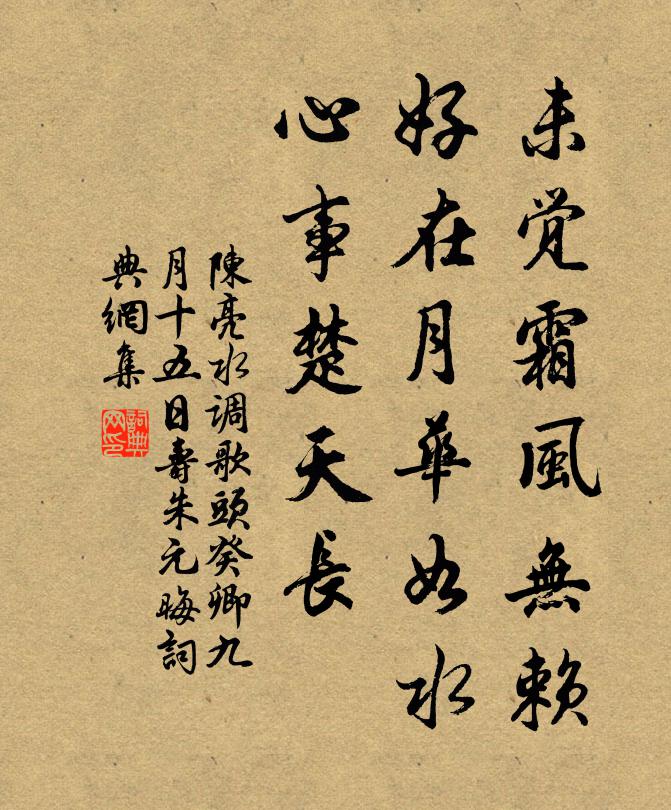 未觉霜風無賴
好在月華如水
心事楚天長
陳亮水調歌頭癸卿九
月十五日壽朱元晦詞
典網集
詞典网印